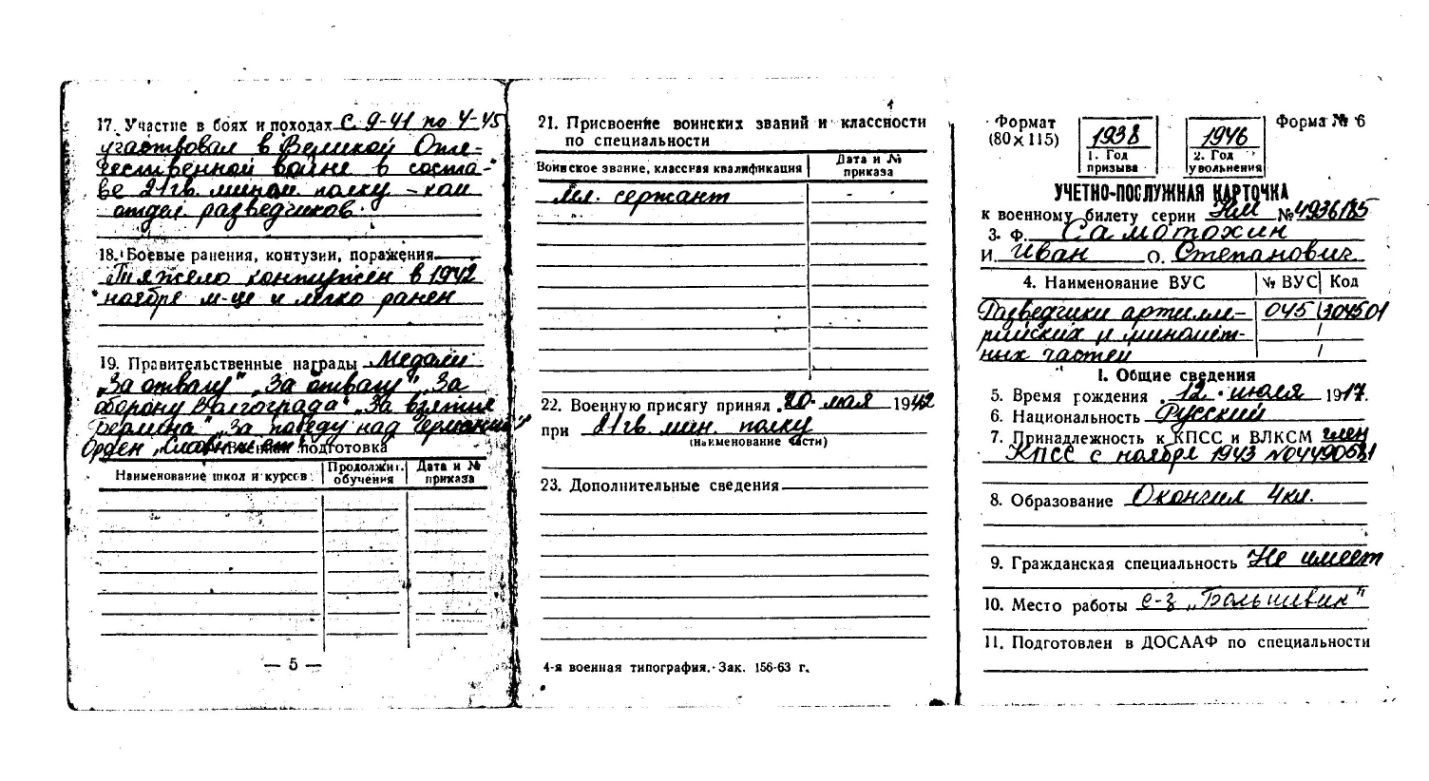 17. Участие в боях и походах с 9-41 по 4-45
участвовал в Великой Оте-
чественной войне в соста-
ве 21 гв. мином полку - ком
отдел разведчиков.
18. Боевые ранения, контузии, поражения
Тяжело контужен в 1942
ноябре м-це и легко ранен
19. Правительственные награды Медали
"За отвагу" "За отвагу" "За
оборону Волгограда" "За взятие
Берлина" "За победу над Германией"
Орден "Славы подготовка
Наименование школ и курсов
Продолжит. обучения
Дата и № приказа
— 5 —
21. Присвоение воинских званий и классности
по специальности
Воинское звание, классная квалификация
Дата и № приказа
Мл. сержант - -
22. Военную присягу принял 20 мая 1942
при 21 гв. мин. полку
(наименование части)
23. Дополнительные сведения
4-я военная типография. Зак. 156-63 г.
Формат
(80×115)
1938
1. Год
призыва
1946
2. Год
увольнения
Форма № 6
УЧЕТНО-ПОСЛУЖНАЯ КАРТОЧКА
к военному билету серии НМ № 4936185
3. Ф. Самотохин
И. Иван О. Степанович
4. Наименование ВУС № ВУС Код
Разведчики артилле- 045 304501
рийских и миномет-
ных частей
I. Общие сведения
5. Время рождения 12 июля 1917.
6. Национальность Русский
7. Принадлежность к КПСС и ВЛКСМ член
КПСС с ноября 1943 №
8. Образование Окончил 4 кл.
9. Гражданская специальность Не имеет
10. Место работы с-з "Большивик"
11. Подготовлен в ДОСААФ по специальности